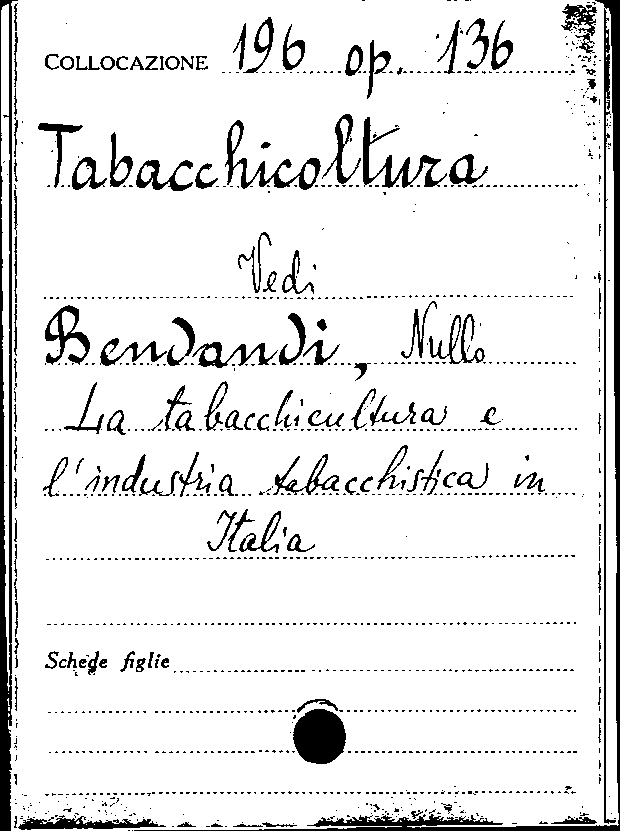 COLLOCAZIONE 196 op. 136
Tabacchicoltura
Vedi
Bendandi, Nullo
La tabacchicultura e
l'industria tabacchistica in
Italia
Schede figlie